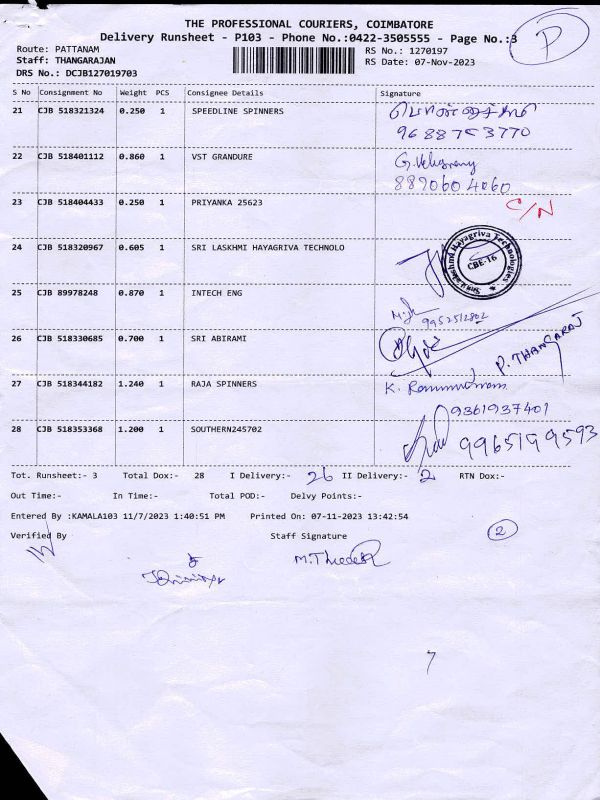 THE PROFESSIONAL COURIERS, COIMBATORE
Delivery Runsheet - P103 - Phone No.:0422-3505555 - Page No.:3
P
Route: PATTANAM
RS No.: 1270197
Staff: THANGARAJAN
RS Date: 07-Nov-2023
DRS No.: DCJB127019703
S No Consignment No Weight PCS Consignee Details Signature
21 CJB 518321324 0.250 1 SPEEDLINE SPINNERS
9688753770
22 CJB 518401112 0.860 1 VST GRANDURE
8890604060
23 CJB 518404433 0.250 1 PRIYANKA 25623 C/N
24 CJB 518320967 0.605 1 SRI LASKHMI HAYAGRIVA TECHNOLO
Sri Lakshmi Hayagriva Technologies
CBE-16
25 CJB 89978248 0.870 1 INTECH ENG
9952512802
26 CJB 518330685 0.700 1 SRI ABIRAMI
P. THANGARAJ
27 CJB 518344182 1.240 1 RAJA SPINNERS
9361937401
28 CJB 518353368 1.200 1 SOUTHERN245702
9965199593
Tot. Runsheet:- 3 Total Dox:- 28 I Delivery:- 26 II Delivery:- 2 RTN Dox:-
Out Time:- In Time:- Total POD:- Delvy Points:-
Entered By :KAMALA103 11/7/2023 1:40:51 PM Printed On: 07-11-2023 13:42:54
Verified By Staff Signature
2
7